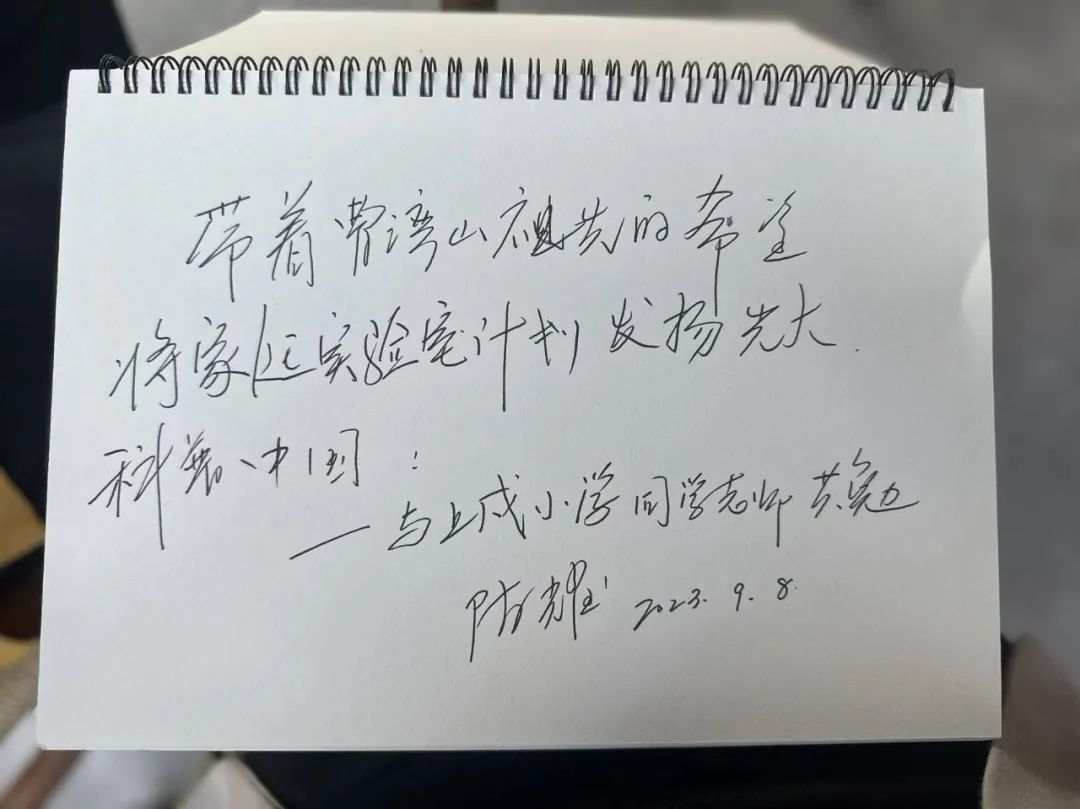 带着曹湾山祖先的希望
将家庭实验室计划发扬光大
科普中国!
——与上戍小学同学老师共勉
陈耀 2023.9.8.